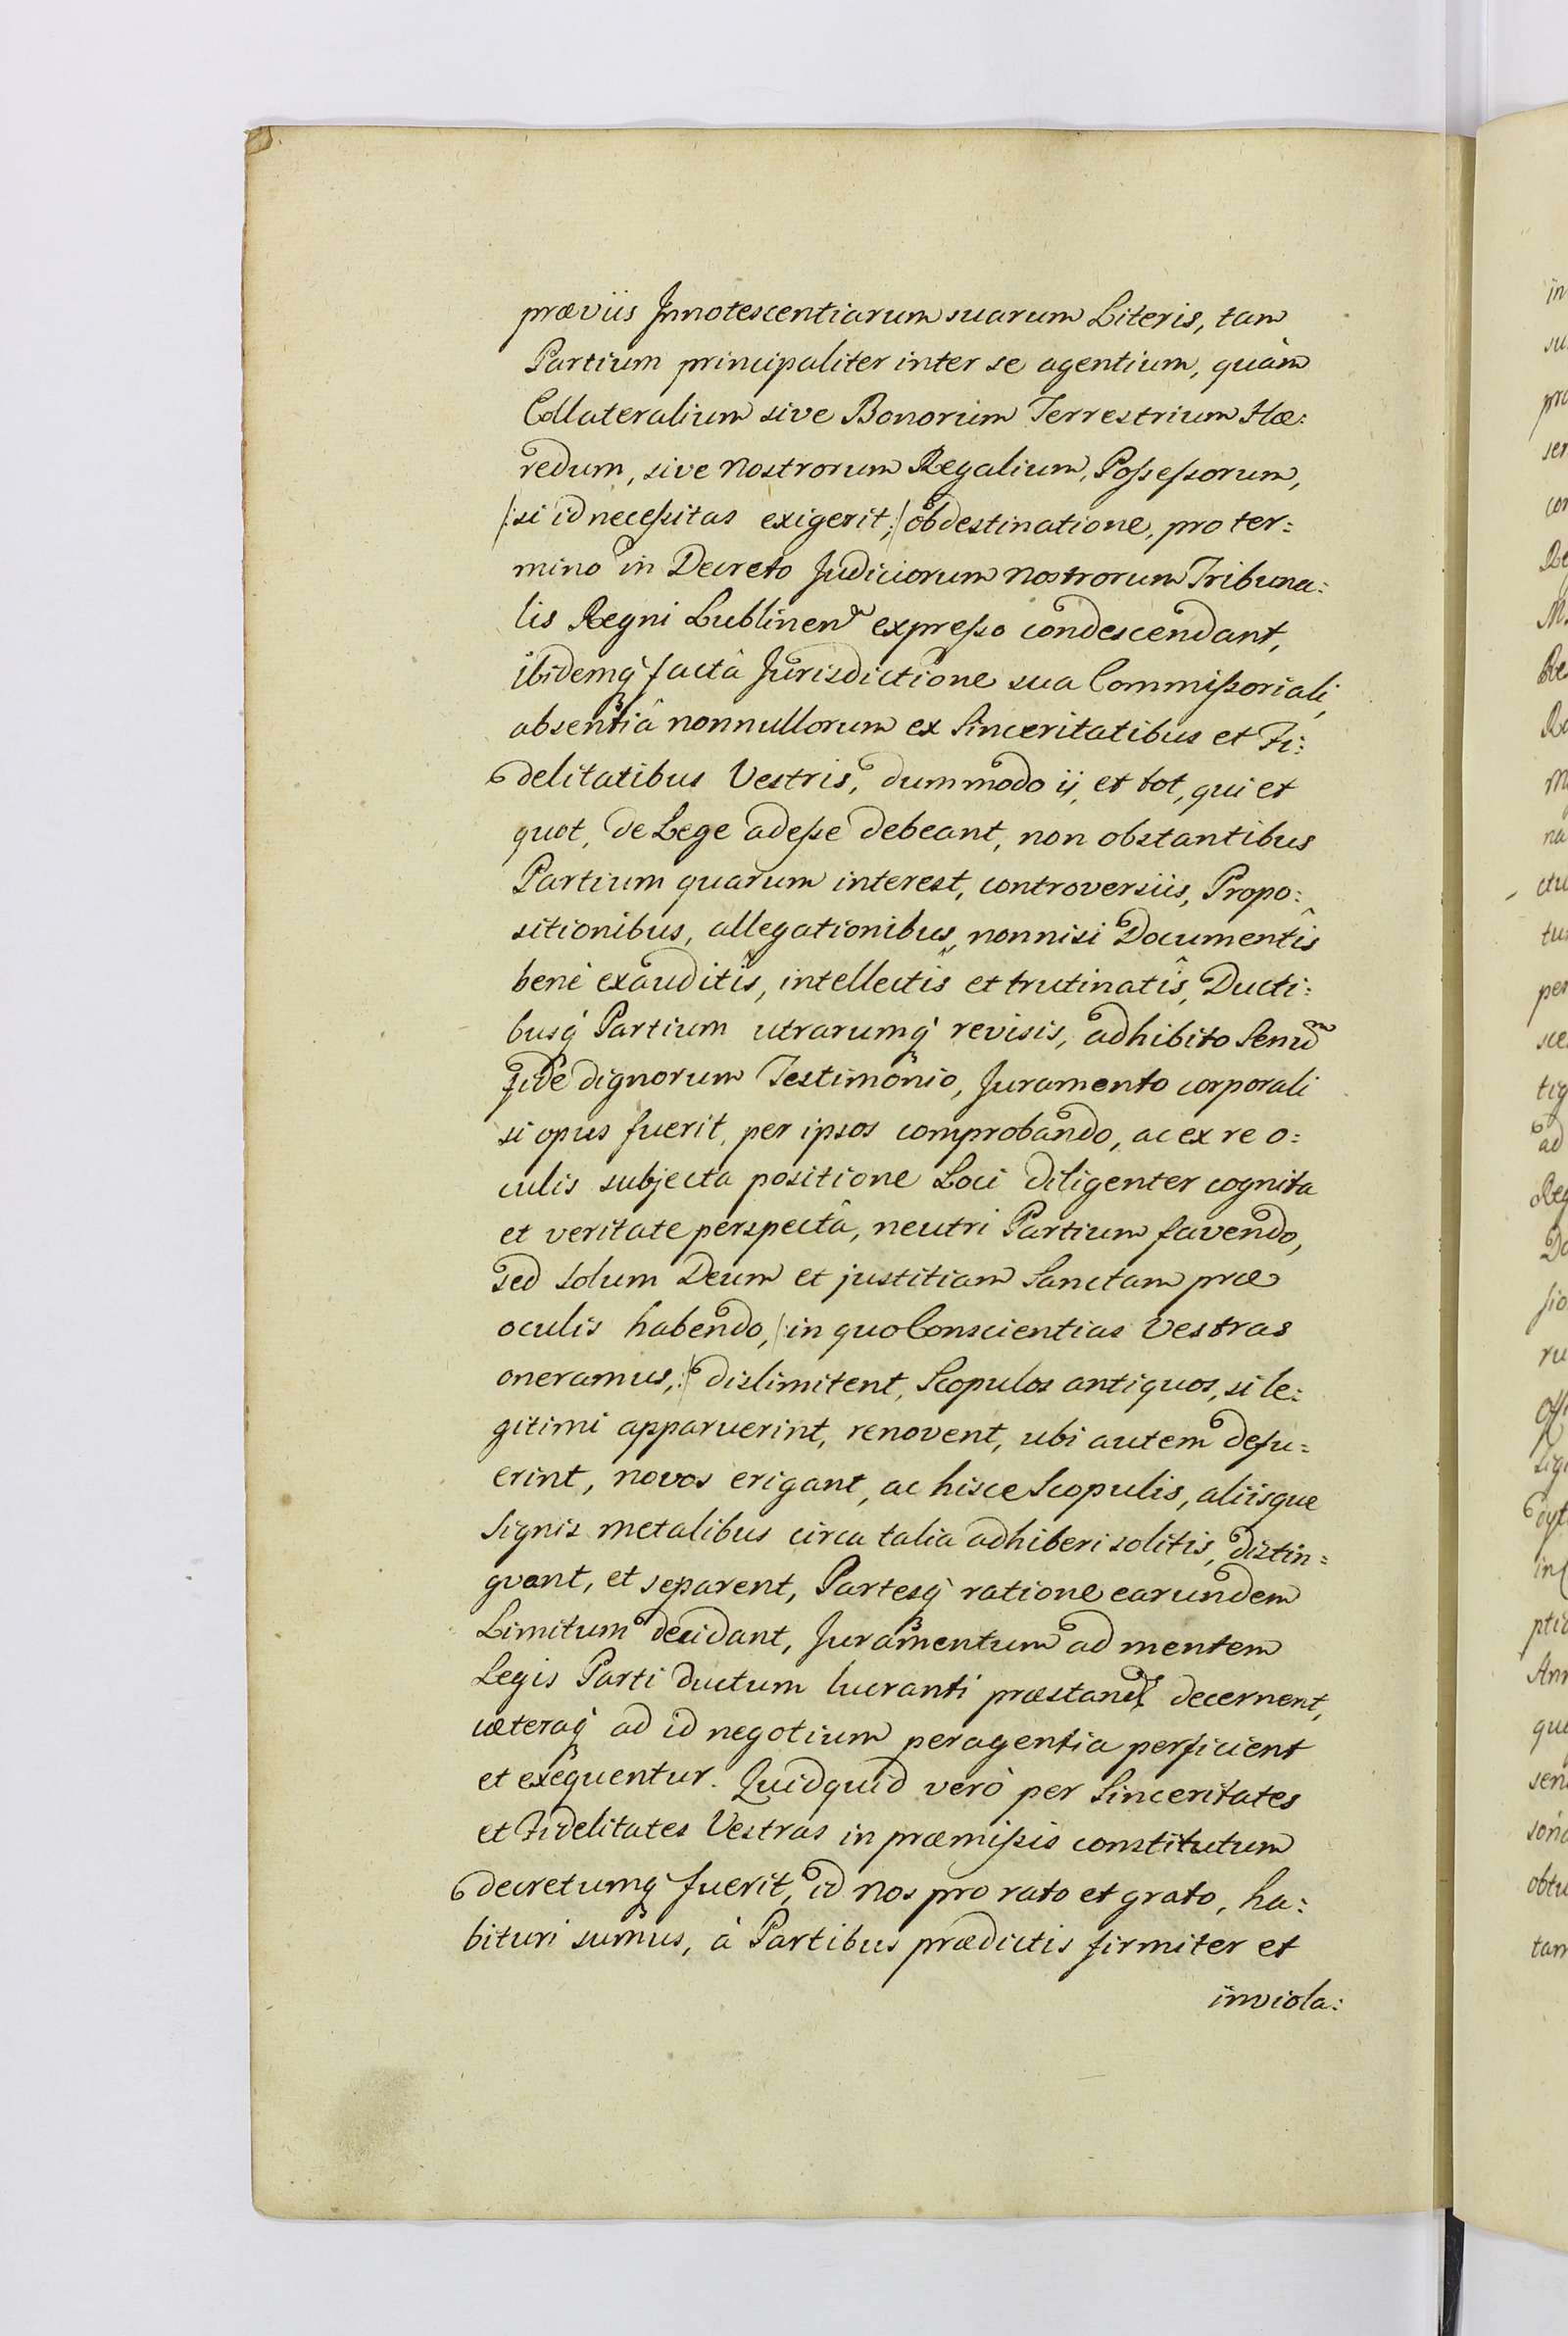 præviis Innotescentiarum suarum Literis, tam
Partium principaliter inter se agentium, quàm
Collateralium sive Bonorum Terrestrium Hæ:
redum, sive Nostrorum Regalium, Poſseſsorum,
/:si id neceſsitas exigerit,:/ obdestinatione, pro ter=
mino in Decreto Judiciorum Nostrorum Tribuna:
lis Regni Lublinen expreſso condescendant,
ibidemq́ factâ Jurisdictione sua Commiſsoriali,
absentiâ nonnullorum ex Sinceritatibus et Fi:
delitatibus Vestris, dummodo ij, et tot, qui et
quot, de Lege adeſse debeant, non obstantibus
Partium quarum interest, controversiis, Propo:
sitionibus, allegationibus, nonnisi Documentîs
benè exauditîs, intellectîs et trutinatîs, Ducti:
busq́ Partium utrarumq́ revisis, adhibito Senũ
fide dignorum Testimonio, Juramento corporali
si opus fuerit, per ipsos comprobando, ac ex re o=
culis subjecta positione Loci diligenter cognita
et veritate perspectâ, neutri Partium favendo,
sed solum Deum et justitiam Sanctam præ
oculis habendo, /:in quo Conscientias Vestras
oneramus,:/ dislimitent, Scopulos antiquos, si le:
gitimi apparuerint, renovent, ubi autem defu=
erint, novos erigant, ac hisce Scopulis, aliisque
Signis metalibus circa talia adhiberi solitis, distin=
guant, et separent, Partesq́ ratione earundem
Limitum decidant, Juramentum ad mentem
Legis Parti ductum lucranti decernent,
cæteraq́ ad id negotium peragentia perficient
et exequentur. Quidquid verò per Sinceritates
et Fidelitates Vestras in præmiſsis constitutum
decretumq́ fuerit, id Nos pro rato et grato, ha:
bituri sumus, à Partibus prædictis firmiter et
inviola: